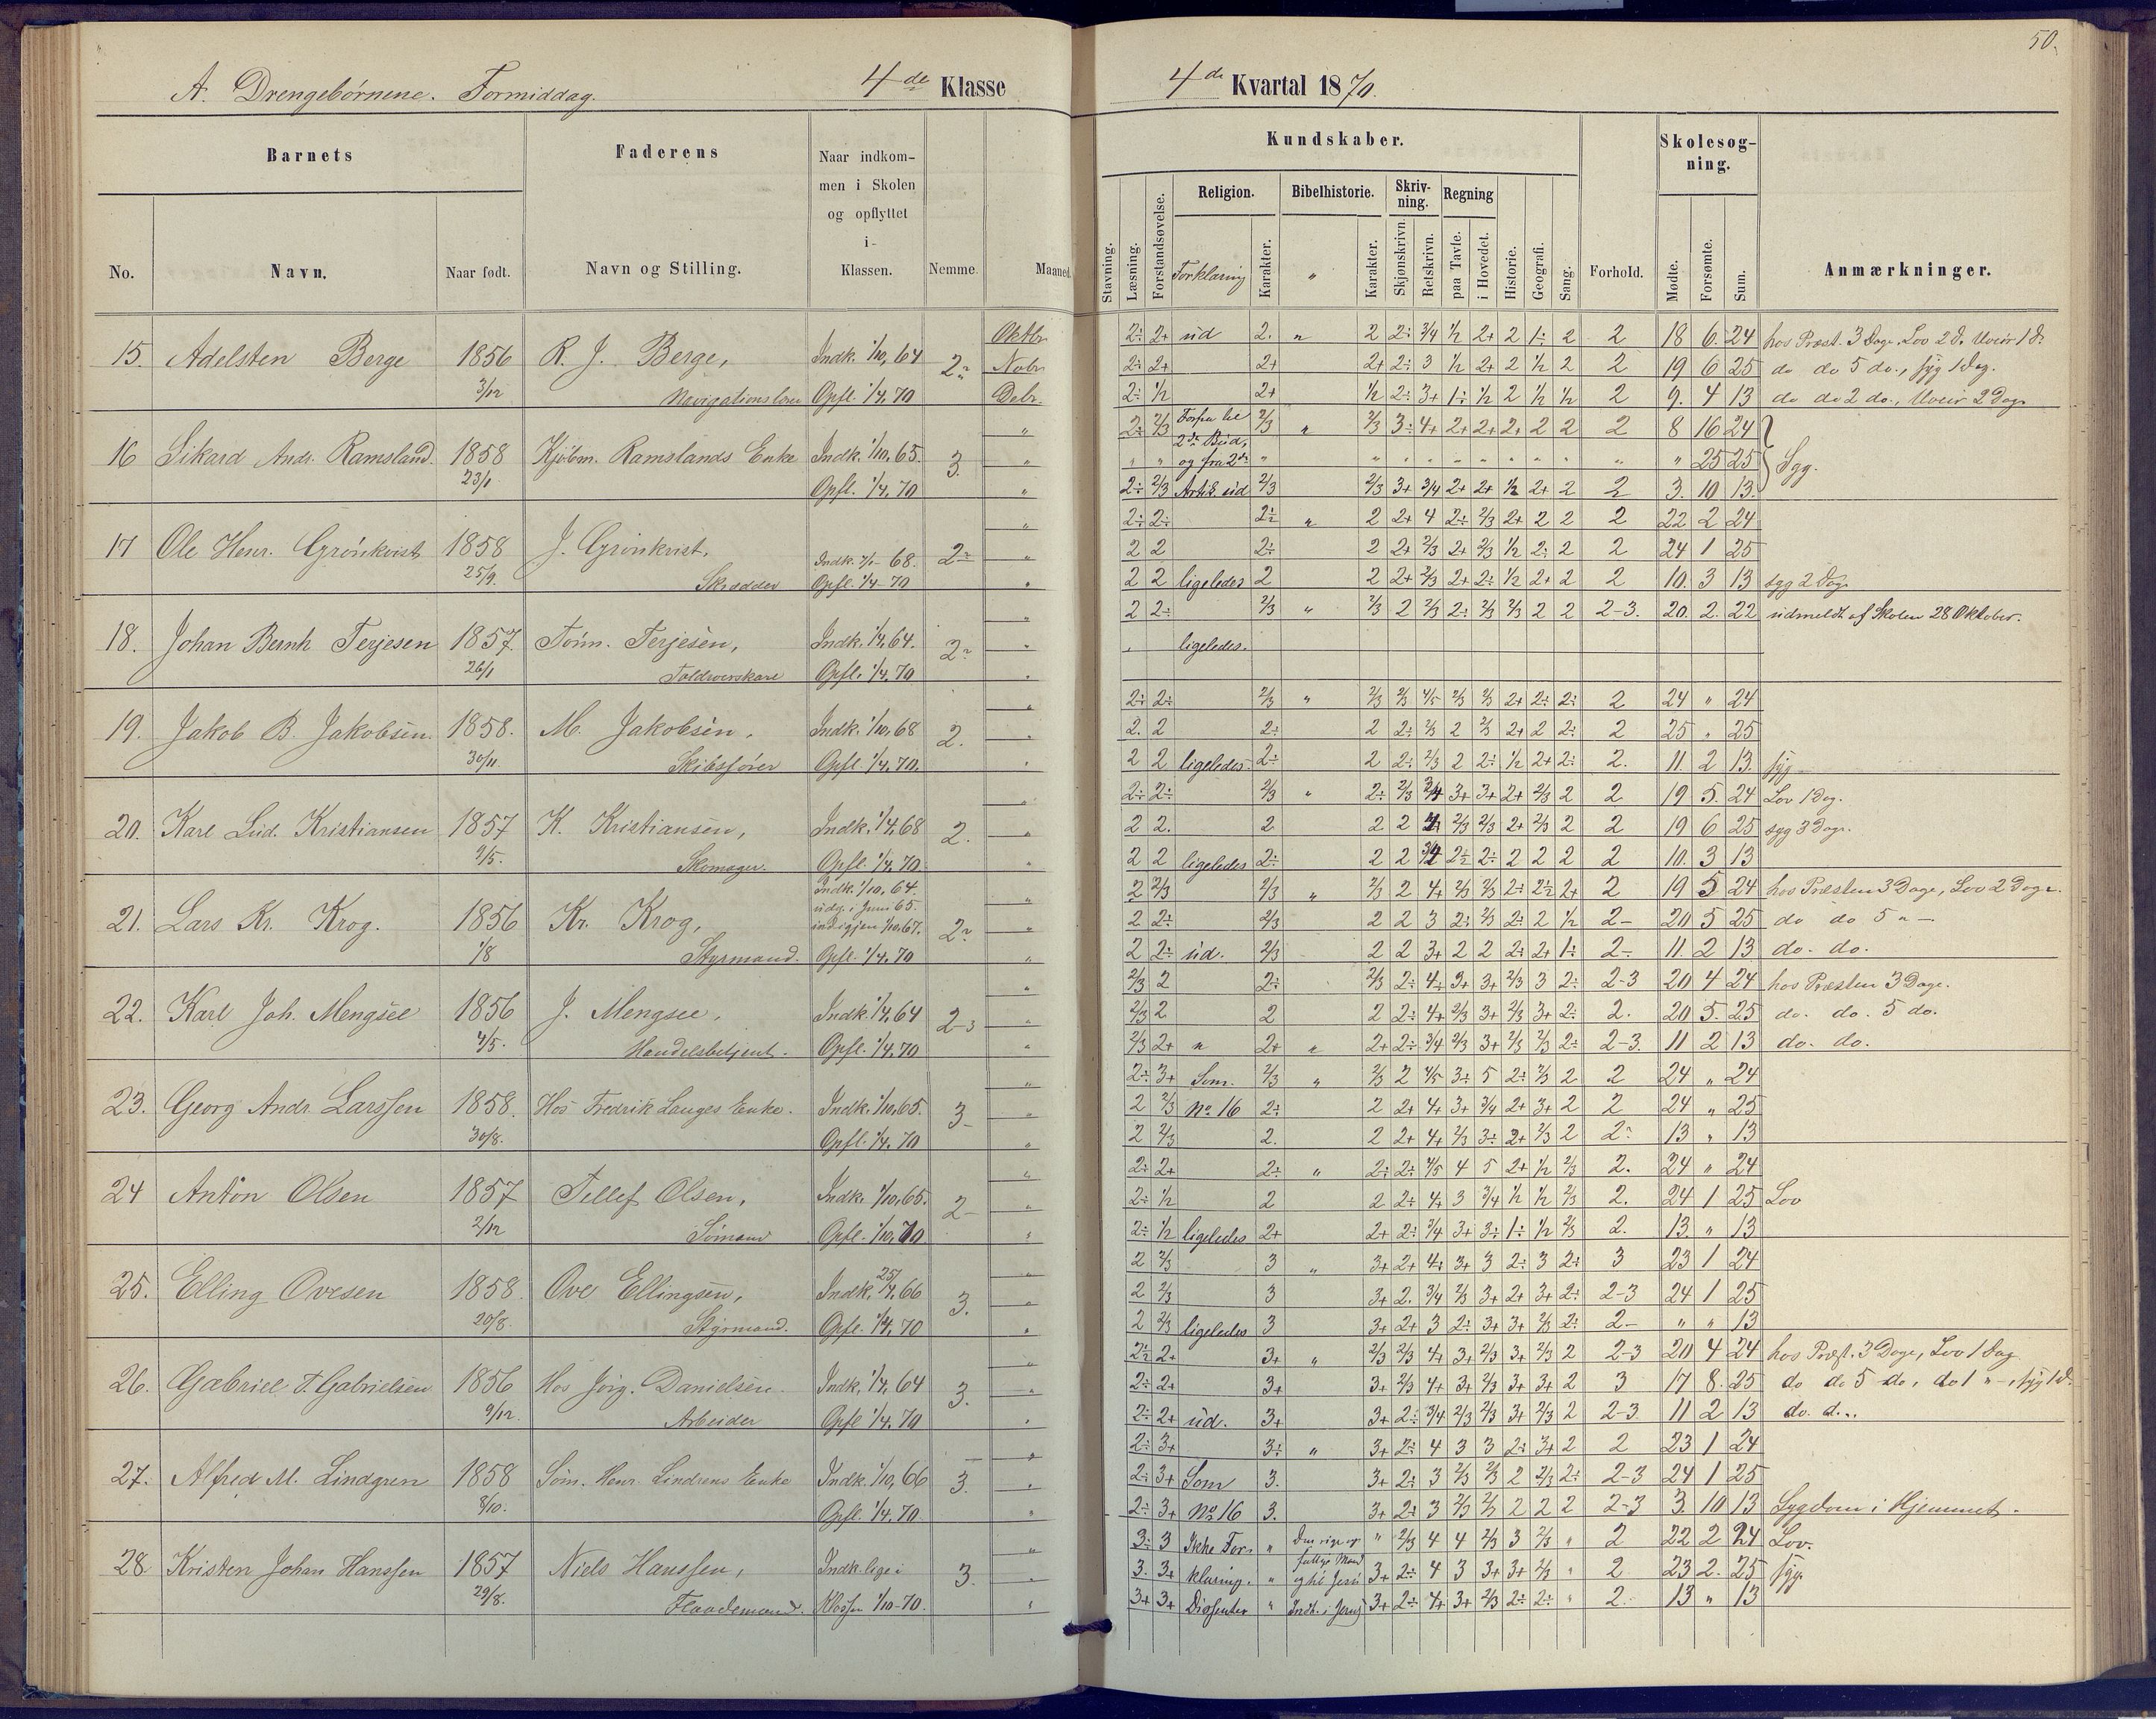 50.
A. Drengebørnene. Formiddag. 4de Klasse
4de Kvartal 1870.
Barnets
Faderens
Naar indkom-
men i Skolen
og opflyttet
i-
Klassen.
No. Navn. Naar født. Navn og Stilling. Nemme. Maaned.
Kundskaber.
Skolesøg-
ning.
Religion. Bibelhistorie. Skriv-
ning. Regning
Stavning. Læsning. Forstandsøvelse. Forklaring Karakter. " Karakter. Skjønskrivn. Retskrivn. paa Tavle. i Hovedet. Historie. Geografi. Sang. Forhold. Mødte. Forsømte. Sum. Anmærkninger.
15. Adelsten Berge 1856 R. J. Berge, Indk. 1/10, 64 2÷ Oktbr.
3/12 Navigationslærer Opfl. 1/4, 70 Novbr.
Debr.
2÷ 2+ ud 2. " 2 2÷ 3/4 1/2 2+ 2 1÷ 2 2 18 6. 24 hos Præst. 3 Dage. Lov 2 d. Uveir 1 d.
2÷ 2+ 2+ 2+ 2÷ 3 1/2 2+ 2 1/2 2 2 19 6 25 do do 5 do., syg 1 dag.
2÷ 1/2 2+ 1/2 2÷ 3+ 1÷ 1/2 2 1/2 1/2 2 9. 4 13 do do 2 do., Uveir 2 Dage
16 Sikard Andr. Ramsland. 1858 Kjøbm. Ramslands Enke Indk. 1/10, 65. 3.
23/1 Opfl. 1/4, 70
2÷ 2/3 2/3 " 2/3 3÷ 4+ 2+ 2+ 2+ 2 2 2 8 16 24
2de Bud,
og fra 2de " 25 25 Syg.
2÷ 2/3 Artik. ud 2/3 2/3 3+ 3/4 2+ 2+ 1/2 2+ 2 2 3. 10 13.
17 Ole Henr. Grønkvist 1858 J. Grønkvist, Indk. 68. 2÷
25/9. Skrædder Opfl. 1/4-70
2÷ 2÷ 2÷ " 2 2+ 4 2÷ 2/3 2+ 2 2 2 22 2 24
2 2 2÷ 2 2+ 2/3 2+ 2/3 1/2 2÷ 2 2 24 1 25
2 2 ligeledes 2 2 2+ 2/3 2+ 2÷ 1/2 2+ 2 2 10. 3 13 syg 2 Dage
18. Johan Bernh Terjesen 1857. Tøm. Terjesen, Indk. 1/4, 64. 2÷
26/1 Opfl. 1/4, 70
2 2÷ 2/3 " 2/3 2 2/3 2÷ 2/3 2/3 2 2 2-3. 20. 2. 22 udmeldt af Skolen 28 Oktober.
ligeledes.
19. Jakob B. Jakobsen. 1858. M. Jakobsen, Indk. 1/10, 68 2.
30/11. Skibsfører Opfl. 1/4, 70.
2÷ 2÷ 2/3 " 2/3 2/3 4/5 2/3 2/3 2+ 2÷ 2÷ 2 24 " 24
2. 2 2÷ 2 2÷ 2/3 2 2/3 2+ 2 2÷ 2 25 " 25
2 2 ligeledes. 2÷ 2 2÷ 2/3 2 2÷ 1/2 2+ 2÷ 2. 11. 2 13. syg
20. Karl Lud. Kristiansen 1857 K. Kristiansen, Indk. 1/4, 68 2.
9/5. Skomager. Opfl. 1/4, 70.
2÷ 2÷ 2/3 " 2÷ 2/3 3/4 3+ 3+ 2+ 2/3 2 2 19 5. 24 Lov 1 Dag.
2 2. 2 2 2 2/3 2/3 2+ 2/3 2 2 19 6 25 syg 3 Dage.
2 2 ligeledes 2÷ 2 2 3/4 2÷ 2÷ 2 2 2 2 10. 3 13
21. Lars Kr. Krog. 1856 Kr. Krog, Indk. 1/10, 64. 2÷
1/8 Styrmand. udg. i Juni 65.
ind igjen 1/10.67.
Opfl. 1/4, 70
2 2/3 2/3 " 2/3 2 4+ 2/3 2/3 2÷ 2÷ 2+ 2 19 5 24 hos Præsten 3 Dage, Lov 2 Dage.
2 2÷ 2/3 2 2 3 2÷ 2/3 2÷ 2 1/2 2- 20 5 25 do do 5 " -
2 2÷ ud. 2/3 2 2 3+ 2 2 2÷ 2+ 1÷ 2- 11. 2 13 do. do.
22. Karl Joh. Mengsee 1856 J. Mengsee, Indk. 1/4, 64 2-3
4/5. Handelsbetjent. Opfl. 1/4, 70
2/3 2 2÷ 2/3 2÷ 4÷ 3+ 3+ 2/3 3 2÷ 2-3 20 4 24 hos Præsten 3 Dage.
2/3 2 2 2 2÷ 4+ 2/3 3+ 2/3 3+ 2÷ 2. 20 5. 25 do. do. 5 do.
2/3 2+ " 2+ " 2+ 2÷ 3/4 2/3 3+ 2/3 2/3 2÷ 2-3. 11 2 13 do. do.
23. Georg Andr Larssen 1858. Hos Fredrik Langes Enke. Indk. 1/10, 65. 3-
30/8. Opfl. 1/4, 70
2÷ 3+ Som. 2/3 " 2/3 2 4/5 3÷ 5 2÷ 2/3 2 2 24 " 24
2 2/3 No 16 2÷ 2 2+ 4+ 3+ 3/4 2+ 3+ 2 2 24 " 25
2 2/3 2. 2 2+ 4+ 2/3 3÷ 2+ 2/3 2 2÷ 13 " 13
24 Anton Olsen 1857 Tellef Olsen, Indk. 1/10, 65. 2-
2/12 Sømand Opfl. 1/10, 70
2÷ 2+ 2÷ " 2÷ 2÷ 4/5 4 5 2+ 1/2 2/3 2. 24 " 24
2÷ 1/2 2 2 2÷ 4÷ 3 3/4 1/2 1/2 2/3 2. 24 1 25 Lov
2÷ 1/2 ligeledes 2+ 2+ 2÷ 3/4 3+ 3÷ 1÷ 1/2 2/3 2. 13. " 13
25. Elling Ovesen 1858. Ove Ellingsen, Indk. 25/4, 66 3.
20/8. Styrmand. Opfl. 1/4, 70
2 2/3 3 " 3+ 2+ 4÷ 3+ 3 2÷ 3 2÷ 3 23 1 24
2 2/3 3 3+ 2. 3/4 2/3 3+ 2+ 3+ 2÷ 2-3 24 1 25
2 2/3 ligeledes 3 3+ 2+ 3 2÷ 3+ 3+ 2/3 2÷ 2- " " 13
26. Gabriel T. Gabrielsen 1856 Hos Jørg. Danielsen. Indk. 1/4, 64 3.
9/12. Arbeider Opfl 1/4, 70
2÷ 2+ 3+ " 2/3 2/3 4+ 3+ 2/3 3+ 2/3 2 2-3 20 4 24 hos Præst. 3 Dage, Lov 1 Dag
2÷ 2+ 3+ 3+ 2/3 4+ 3+ 2/3 3+ 3+ 2 3 17 8. 25 do do 5 do, do 1 " -, syg 1 d.
2÷ 2+ ud. 3+ 3+ 2÷ 3/4 2/3 2/3 3+ 2/3 2 2-3 11 2 13 do. d..
27. Alfred M. Lindgren 1858 Søm. Henr. Lindrens Enke Indk. 1/10, 66 3.
8/10. Opfl. 1/4, 70
2÷ 3+ 3÷ " 3+ 2÷ 4 3 3 2÷ 3+ 2 2 23 1 24
2÷ 3+ Som 3. 3+ 2÷ 3 2/3 2/3 2 2/3 2÷ 2-3 24 1 25
2÷ 3+ No 16 3. 3+ 2÷ 3 2/3 2/3 2 2 2 2-3 3. 10 13 Sygdom i Hjemmet.
28 Kristen Johan Hanssen 1857 Niels Hanssen, Indk. lige i 3.
29/8. Flaademand. Klassen 1/10-70.
3÷ 3 Ikke For- " Den rige og " 2/3 4 4 2/3 3 2/3 " 2 22 2 24 Lov.
3. 3+ klaring. " fattige Mand 3+ 2÷ 4 3 3+ 3+ 2/3 " 2 23 2. 25 syg.
og til Jesu
3+ 3+ Dissenter " Indt. i Jerus. 3+ 2÷ 4+ 3+ 2/3 2÷ 2÷ " 2. 13 " 13